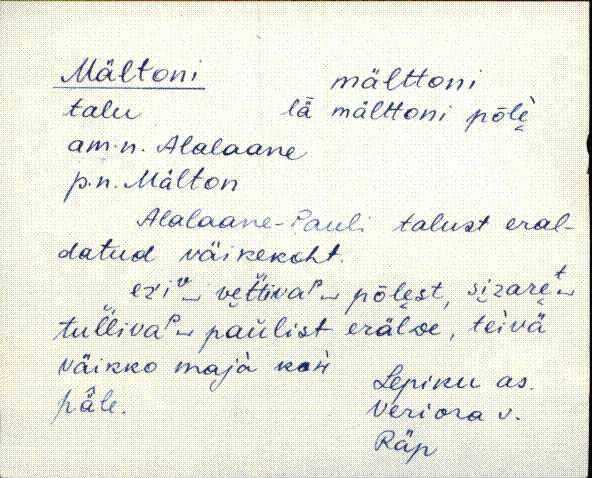 Mältoni mälttoni
talu lä mälttoni põlè
am.n. Alalaane
p.n. Mälton
Alalaane-Pauli talust eral-
datud väikekoht.
vettiva põlest, sizare
tulliva paulist erälde, teivä
väikko maja
päle. Lepiku as.
Veriora v.
Räp